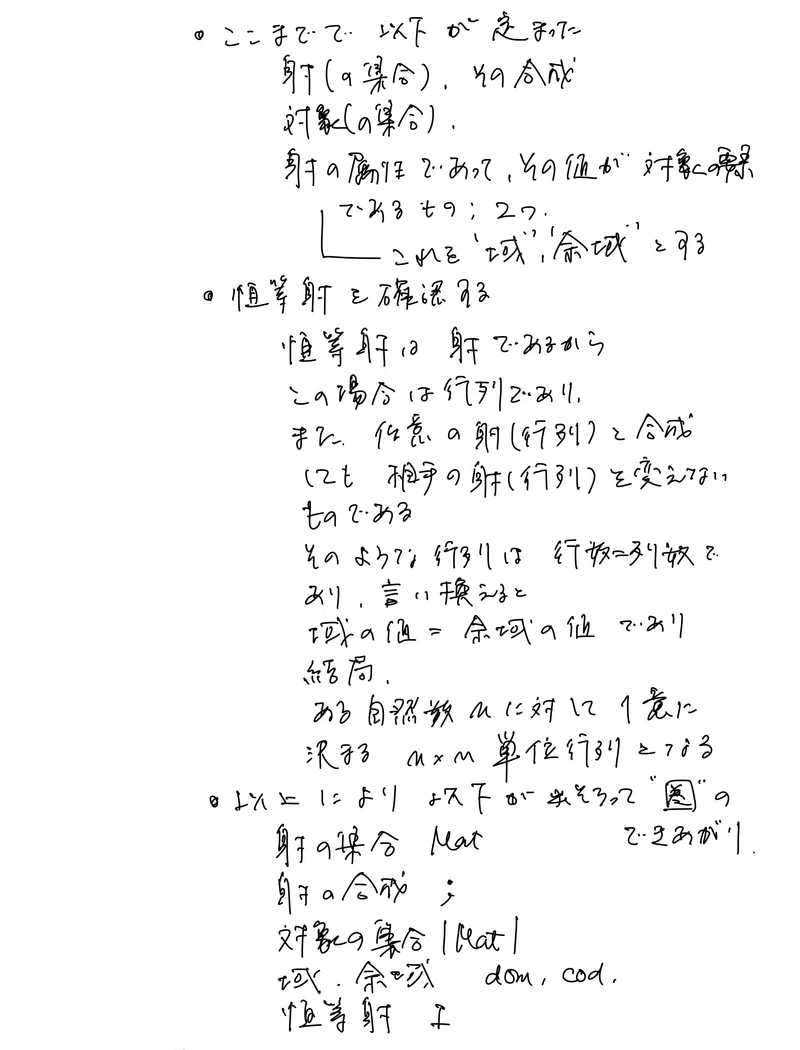 • ここまでで 以下が 定まった
射(の集合)、その合成
対象(の集合)、
射の属性であって、その値が 対象の要素
であるもの; 2つ.
これを "域", "余域" とする
• 恒等射を確認する
恒等射は 射であるから
この場合は行列であり、
また、任意の射(行列)と合成
しても 相手の射(行列)を変えない
ものである
そのような行列は 行数=列数で
あり、言い換えると
域の値 = 余域の値 であり
結局、
ある自然数 n に対して 1意に
決まる n×n 単位行列となる
• 以上により 以下が出そろって "圏" の
できあがり.
射の集合 Mat
射の合成 ;
対象の集合 |Mat|
域、余域 dom, cod.
恒等射 I